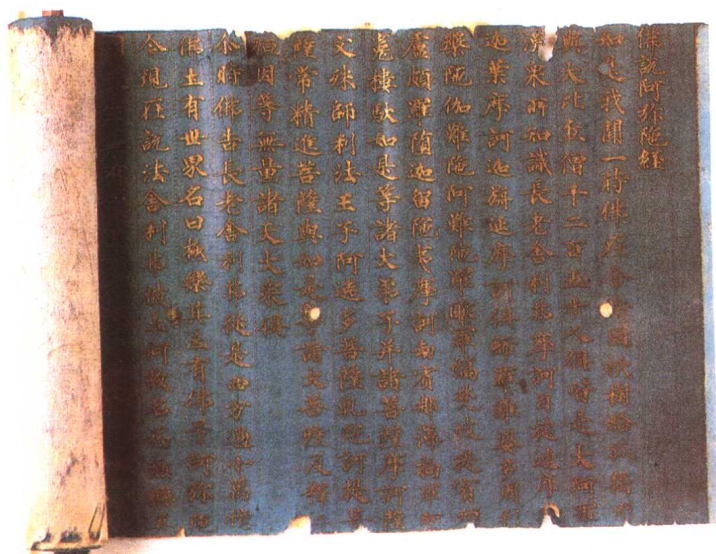 佛說阿弥陀經
如是我聞一時佛在舍衛國祇樹給孤獨
與大比丘僧千二百五十人俱皆是大阿羅
漢衆所知識長老舍利弗摩訶目揵連摩
迦葉摩訶迦旃延摩訶俱絺羅離婆多周
槃陀伽難陀阿難陀羅睺羅憍梵波提賓頭
盧頗羅墮迦留陀夷摩訶劫賓那薄拘羅阿
㝹樓馱如是等諸大弟子并諸菩薩摩訶薩
文殊師利法王子阿逸多菩薩乾陀訶提菩
薩常精進菩薩與如是等諸大菩薩及釋
桓因等無量諸天大衆俱
尒時佛告長老舍利弗從是西方過十萬億
佛土有世界名曰極樂其土有佛号阿弥陀
今現在說法舍利弗彼土何故名為極樂其